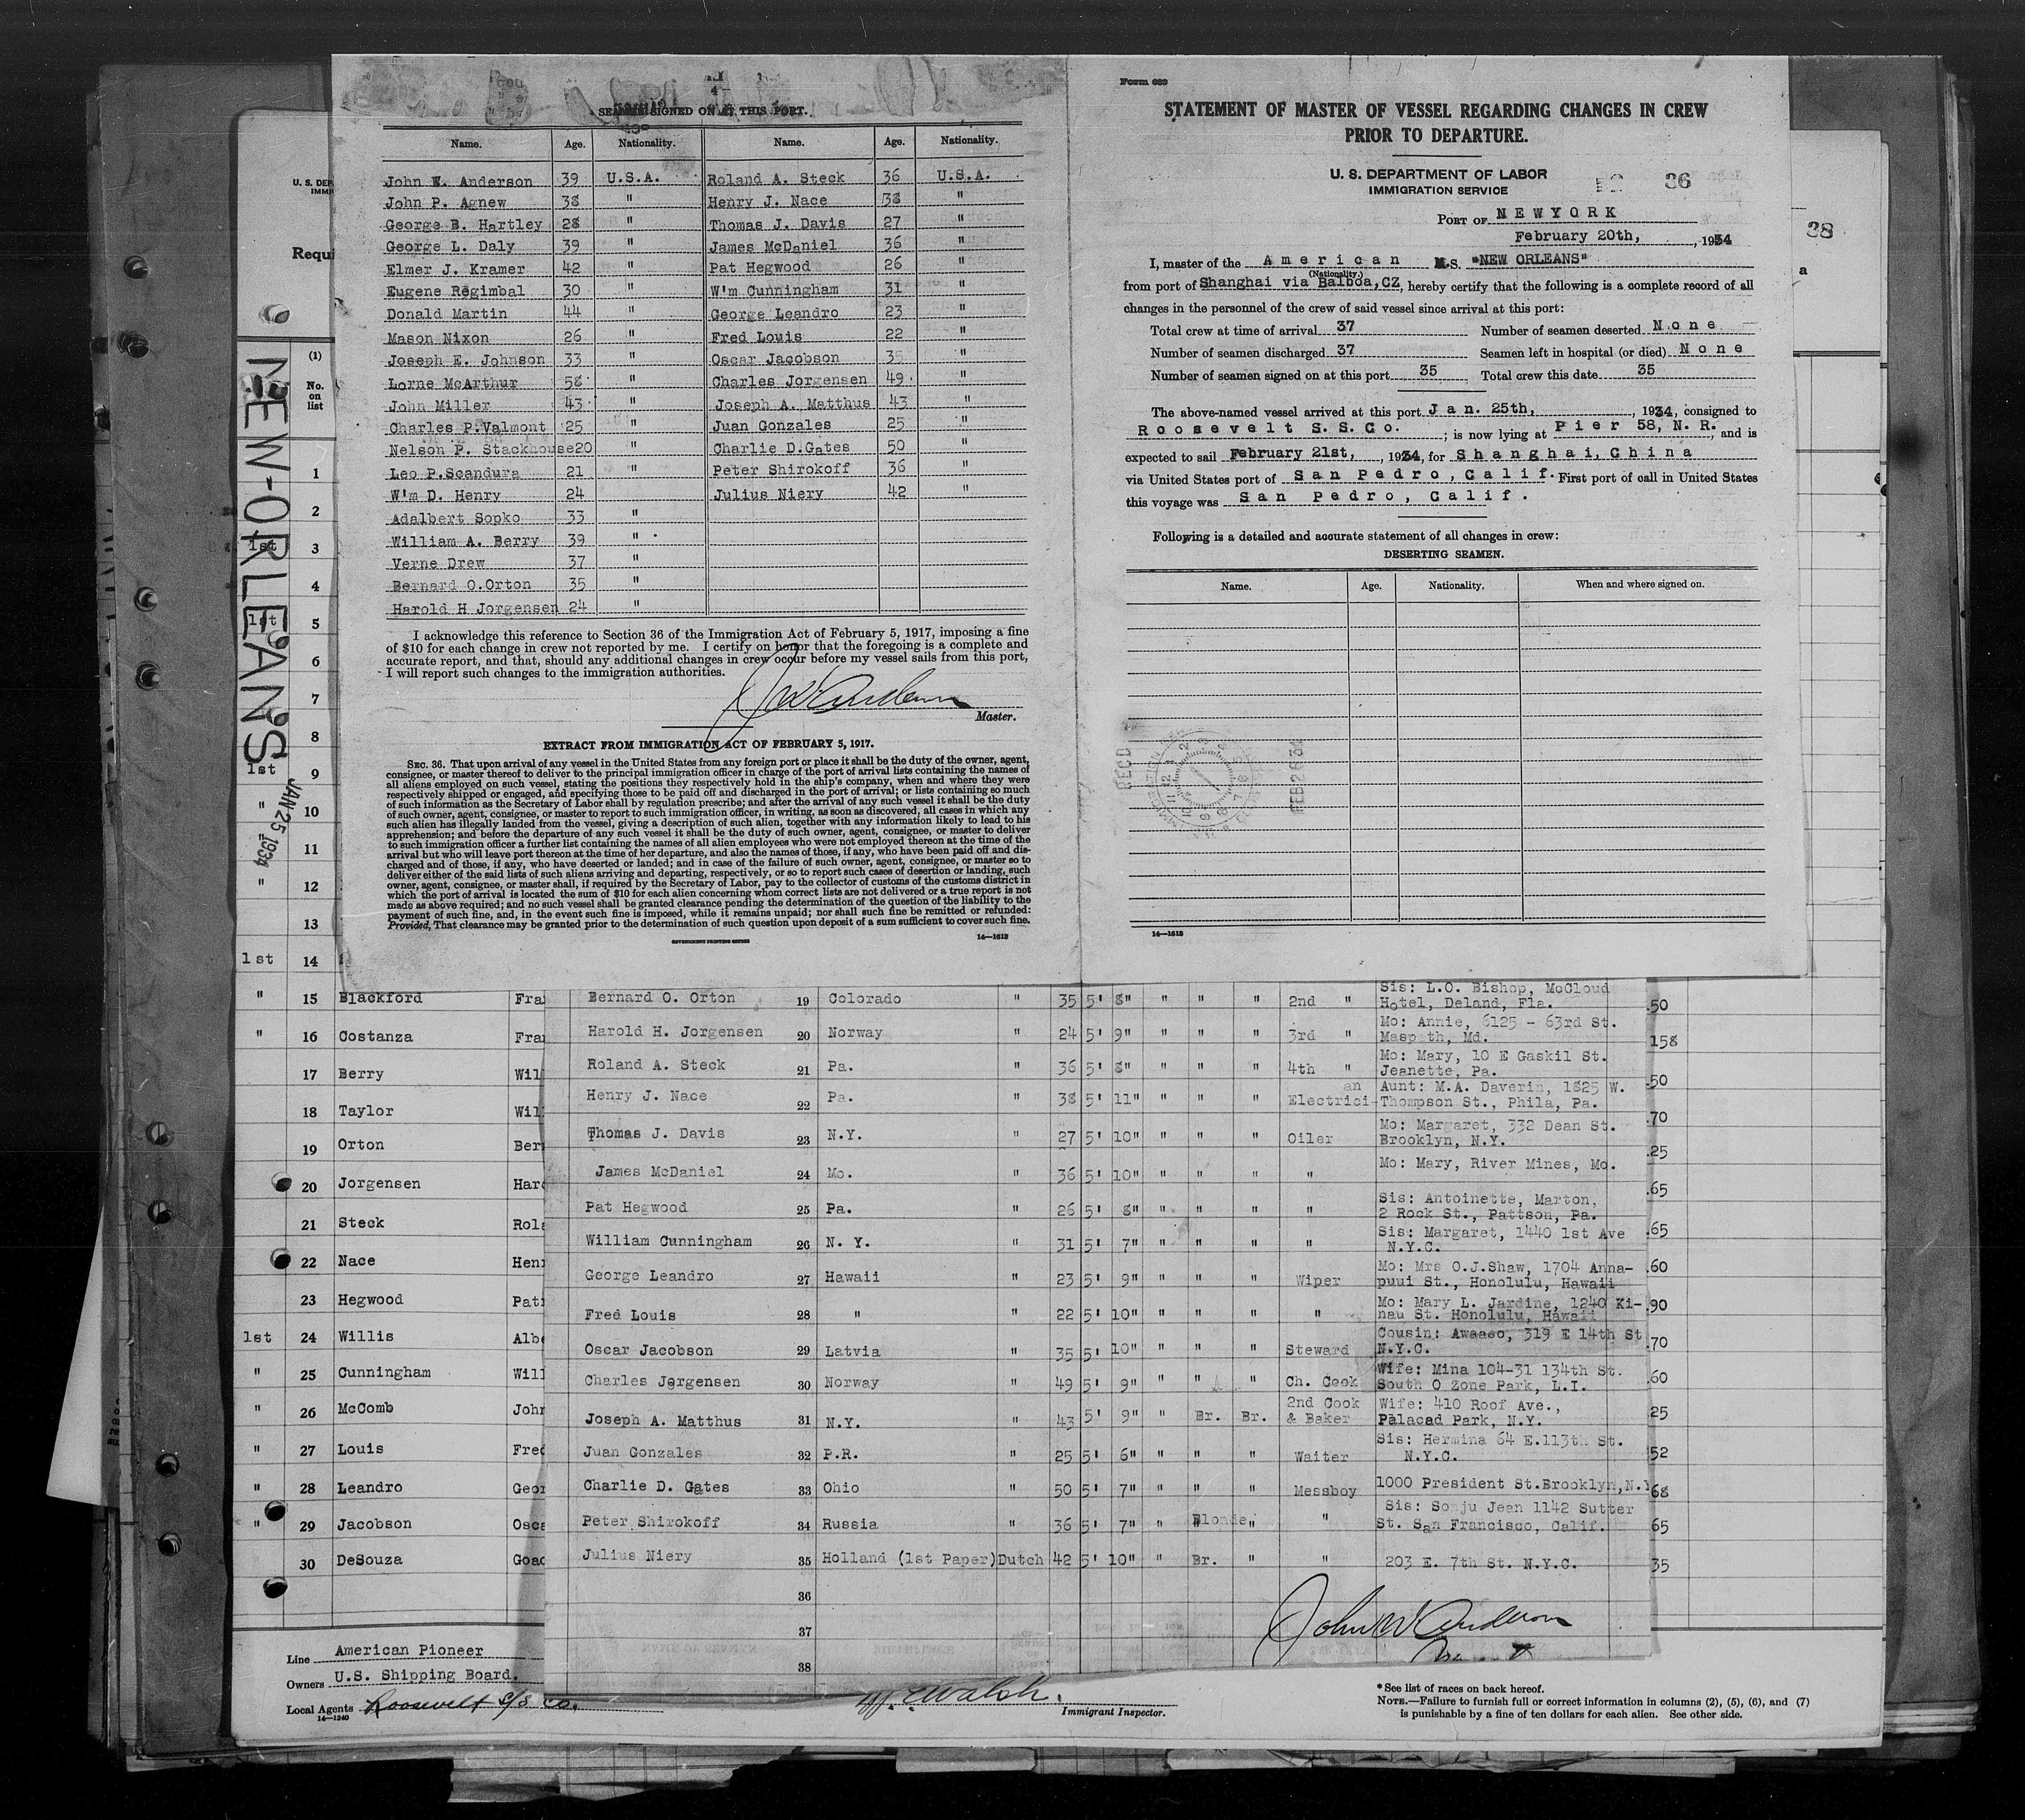 SEAMEN SIGNED ON AT THIS PORT.
Name. Age. Nationality. Name. Age. Nationality.
John W. Anderson 39 U.S.A. Roland A. Steck 36 U.S.A.
John P. Agnew 38 " Henry J. Nace 38 "
George B. Hartley 28 " Thomas J. Davis 27 "
George L. Daly 39 " James McDaniel 36 "
Elmer J. Kramer 42 " Pat Hegwood 26 "
Eugene Regimbal 30 " W'm Cunningham 31 "
Donald Martin 44 " George Leandro 23 "
Mason Nixon 26 " Fred Louis 22 "
Joseph E. Johnson 33 " Oscar Jacobson 35 "
Lorne McArthur 58 " Charles Jorgensen 49 "
John Miller 43 " Joseph A. Matthus 43 "
Charles P.Valmont 25 " Juan Gonzales 25 "
Nelson P. Stackhouse20 " Charlie D.Gates 50 "
Leo P.Scandura 21 " Peter Shirokoff 36 "
W'm D. Henry 24 " Julius Niery 42 "
Adalbert Sopko 33 "
William A. Berry 39 "
Verne Drew 37 "
Bernard O.Orton 35 "
Harold H Jorgensen 24 "
I acknowledge this reference to Section 36 of the Immigration Act of February 5, 1917, imposing a fine
of $10 for each change in crew not reported by me. I certify on honor that the foregoing is a complete and
accurate report, and that, should any additional changes in crew occur before my vessel sails from this port,
I will report such changes to the immigration authorities.
J W Anderson
Master.
EXTRACT FROM IMMIGRATION ACT OF FEBRUARY 5, 1917.
SEC. 36. That upon arrival of any vessel in the United States from any foreign port or place it shall be the duty of the owner, agent,
consignee, or master thereof to deliver to the principal immigration officer in charge of the port of arrival lists containing the names of
all aliens employed on such vessel, stating the positions they respectively hold in the ship's company, when and where they were
respectively shipped or engaged, and specifying those to be paid off and discharged in the port of arrival; or lists containing so much
of such information as the Secretary of Labor shall by regulation prescribe; and after the arrival of any such vessel it shall be the duty
of such owner, agent, consignee, or master to report to such immigration officer, in writing, as soon as discovered, all cases in which any
such alien has illegally landed from the vessel, giving a description of such alien, together with any information likely to lead to his
apprehension; and before the departure of any such vessel it shall be the duty of such owner, agent, consignee, or master to deliver
to such immigration officer a further list containing the names of all alien employees who were not employed thereon at the time of the
arrival but who will leave port thereon at the time of her departure, and also the names of those, if any, who have been paid off and dis-
charged and of those, if any, who have deserted or landed; and in case of the failure of such owner, agent, consignee, or master so to
deliver either of the said lists of such aliens arriving and departing, respectively, or so to report such cases of desertion or landing, such
owner, agent, consignee, or master shall, if required by the Secretary of Labor, pay to the collector of customs of the customs district in
which the port of arrival is located the sum of $10 for each alien concerning whom correct lists are not delivered or a true report is not
made as above required; and no such vessel shall be granted clearance pending the determination of the question of the liability to the
payment of such fine, and, in the event such fine is imposed, while it remains unpaid; nor shall such fine be remitted or refunded:
Provided, That clearance may be granted prior to the determination of such question upon deposit of a sum sufficient to cover such fine.
GOVERNMENT PRINTING OFFICE 14—1613
Form 689
STATEMENT OF MASTER OF VESSEL REGARDING CHANGES IN CREW
PRIOR TO DEPARTURE.
U. S. DEPARTMENT OF LABOR
IMMIGRATION SERVICE
36
PORT OF NEWYORK
February 20th, , 1934
I, master of the American M.S. "NEW ORLEANS"
(Nationality.)
from port of Shanghai via Balboa,CZ, hereby certify that the following is a complete record of all
changes in the personnel of the crew of said vessel since arrival at this port:
Total crew at time of arrival 37 Number of seamen deserted None
Number of seamen discharged 37 Seamen left in hospital (or died) None
Number of seamen signed on at this port 35 Total crew this date 35
The above-named vessel arrived at this port Jan. 25th, , 1934, consigned to
Roosevelt S.S.Co. ; is now lying at Pier 58, N. R. , and is
expected to sail February 21st, , 1934, for Shanghai, China
via United States port of San Pedro, Calif. First port of call in United States
this voyage was San Pedro, Calif.
Following is a detailed and accurate statement of all changes in crew:
DESERTING SEAMEN.
Name. Age. Nationality. When and where signed on.
REC'D
FEB 26 34
14—1613
38
a
U. S. DEP
IMMI
Requi
(1)
No.
on
list
NEW-ORLEANS
JAN 25 1934
1
2
1st 3
4
1st 5
6
7
8
1st 9
" 10
11
" 12
13
1st 14
" 15 Blackford Fra
" 16 Costanza Fra
17 Berry Wil
18 Taylor Wil
19 Orton Ber
20 Jorgensen Har
21 Steck Rol
22 Nace Hen
23 Hegwood Pat
1st 24 Willis Alb
" 25 Cunningham Will
" 26 McComb John
" 27 Louis Fred
" 28 Leandro Geor
" 29 Jacobson Osca
30 DeSouza Goa
Bernard O. Orton 19 Colorado " 35 5' 8" " " " 2nd " Sis: L.O. Bishop, McCloud
Hotel, Deland, Fla. 50
Harold H. Jorgensen 20 Norway " 24 5' 9" " " " 3rd " Mo: Annie, 6125 - 63rd St.
Maspeth, Md. 158
Roland A. Steck 21 Pa. " 36 5' 8" " " " 4th " Mo: Mary, 10 E Gaskil St.
Jeanette, Pa. 50
Henry J. Nace 22 Pa. " 38 5' 11" " " " Electrici-an Aunt: M.A. Daverin, 1825 W.
Thompson St., Phila, Pa. 70
Thomas J. Davis 23 N.Y. " 27 5' 10" " " " Oiler Mo: Margaret, 332 Dean St.
Brooklyn, N.Y. 25
James McDaniel 24 Mo. " 36 5' 10" " " " " Mo: Mary, River Mines, Mo. 65
Pat Hegwood 25 Pa. " 26 5' 8" " " " " Sis: Antoinette, Marton,
2 Rock St., Pattson, Pa. 65
William Cunningham 26 N. Y. " 31 5' 7" " " " " Sis: Margaret, 1440 1st Ave
N.Y.C. 60
George Leandro 27 Hawaii " 23 5' 9" " " " Wiper Mo: Mrs O.J.Shaw, 1704 Anna-
puui St., Honolulu, Hawaii 90
Fred Louis 28 " " 22 5' 10" " " " " Mo: Mary L. Jardine, 1240 Ki-
nau St. Honolulu, Hawaii
Oscar Jacobson 29 Latvia " 35 5' 10" " " " Steward Cousin: Awaaso, 319 E 14th St
N.Y.C. 70
Charles Jørgensen 30 Norway " 49 5' 9" " " " Ch. Cook Wife: Mina 104-31 134th St.
South O zone Park, L.I. 60
Joseph A. Matthus 31 N.Y. " 43 5' 9" " Br. Br. 2nd Cook & Baker Wife: 410 Roof Ave.,
Palacad Park, N.Y. 25
Juan Gonzales 32 P.R. " 25 5' 6" " " " Waiter Sis: Hermina 64 E.113th St.
N.Y.C. 52
Charlie D. Gates 33 Ohio " 50 5' 7" " " " Messboy 1000 President St.Brooklyn,N.Y 68
Peter Shirokoff 34 Russia " 36 5' 7" " Blonde " " Sis: Sonju Jean 1142 Sutter
St. San Francisco, Calif. 65
Julius Niery 35 Holland (1st Paper) Dutch 42 5' 10" " Br. " " 203 E. 7th St. N.Y.C. 35
36
37
38
John W Anderson
Line American Pioneer
Owners U.S. Shipping Board.
Local Agents Roosevelt S/S Co.
14—1240
Walsh.
Immigrant Inspector.
* See list of races on back hereof.
NOTE.—Failure to furnish full or correct information in columns (2), (5), (6), and (7)
is punishable by a fine of ten dollars for each alien. See other side.